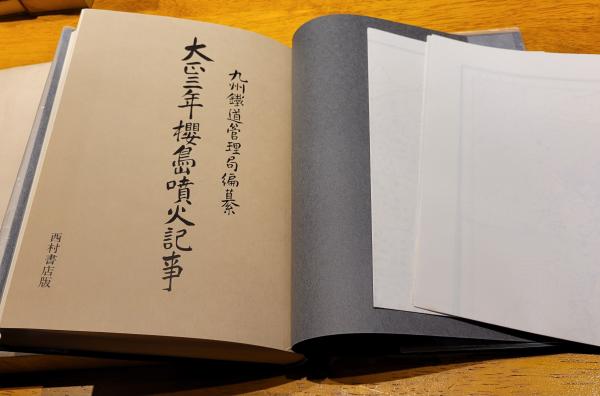 九州鐵道管理局編纂
大正三年櫻島噴火記事
西村書店版